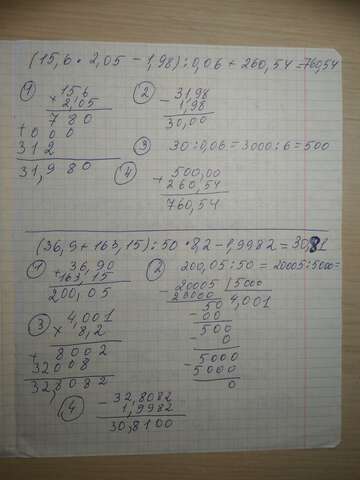 (15,6 · 2,05 − 1,98) : 0,06 + 260,54 = 760,54
① 15,6
× 2,05
780
+ 000
312
31,980
② − 31,98
1,98
30,00
③ 30 : 0,06 = 3000 : 6 = 500
④ + 500,00
260,54
760,54
(36,9 + 163,15) : 50 · 8,2 − 1,9982 = 30,81
① 36,90
+ 163,15
200,05
② 200,05 : 50 = 20005 : 5000 =
− 20005 | 5000
20000 | 4,001
50
− 00
500
− 0
5000
− 5000
0
③ 4,001
× 8,2
+ 8002
32008
32,8082
④ − 32,8082
1,9982
30,8100